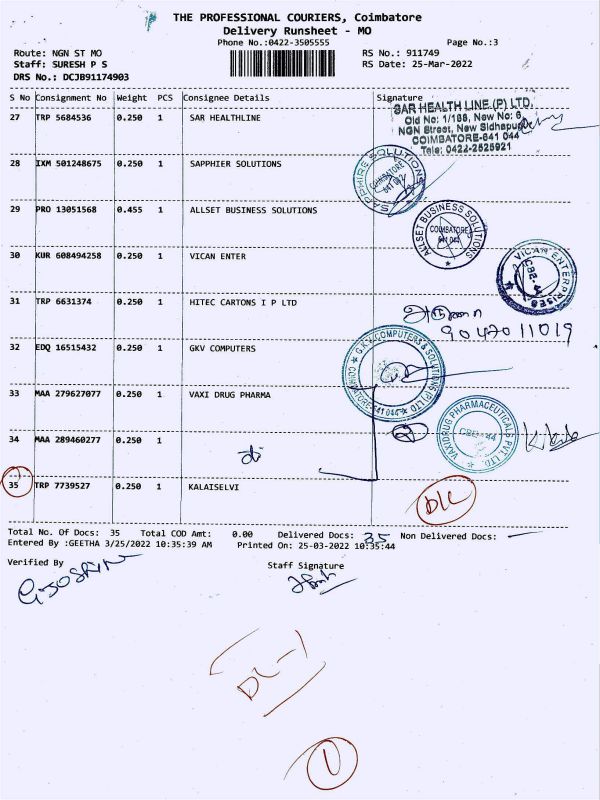 THE PROFESSIONAL COURIERS, Coimbatore
Delivery Runsheet - MO
Phone No.:0422-3505555 Page No.:3
Route: NGN ST MO RS No.: 911749
Staff: SURESH P S RS Date: 25-Mar-2022
DRS No.: DCJB91174903
S No Consignment No Weight PCS Consignee Details Signature
27 TRP 5684536 0.250 1 SAR HEALTHLINE
SAR HEALTH LINE (P) LTD.
Old No: 1/188, New No: 6,
NGN Street, New Sidhapudur
COIMBATORE-641 044
Tele: 0422-2525921
28 IXM 501248675 0.250 1 SAPPHIER SOLUTIONS
SAPPHIRE SOLUTIONS
COIMBATORE
29 PRO 13051568 0.455 1 ALLSET BUSINESS SOLUTIONS
ALLSET BUSINESS SOLUTIONS
COIMBATORE
641 044
30 KUR 608494258 0.250 1 VICAN ENTER
VICAN ENTERPRISES
31 TRP 6631374 0.250 1 HITEC CARTONS I P LTD
9047011019
32 EDQ 16515432 0.250 1 GKV COMPUTERS
G.K.V COMPUTERS & SOLUTIONS (P) LTD
COIMBATORE-641 044
33 MAA 279627077 0.250 1 VAXI DRUG PHARMA
VAXIDRUG PHARMACEUTICALS PVT. LTD
CBE-44
34 MAA 289460277 0.250 1
35 TRP 7739527 0.250 1 KALAISELVI
DLC
Total No. Of Docs: 35 Total COD Amt: 0.00 Delivered Docs: 35 Non Delivered Docs: -
Entered By :GEETHA 3/25/2022 10:35:39 AM Printed On: 25-03-2022 10:35:44
Verified By Staff Signature
DL-1
1